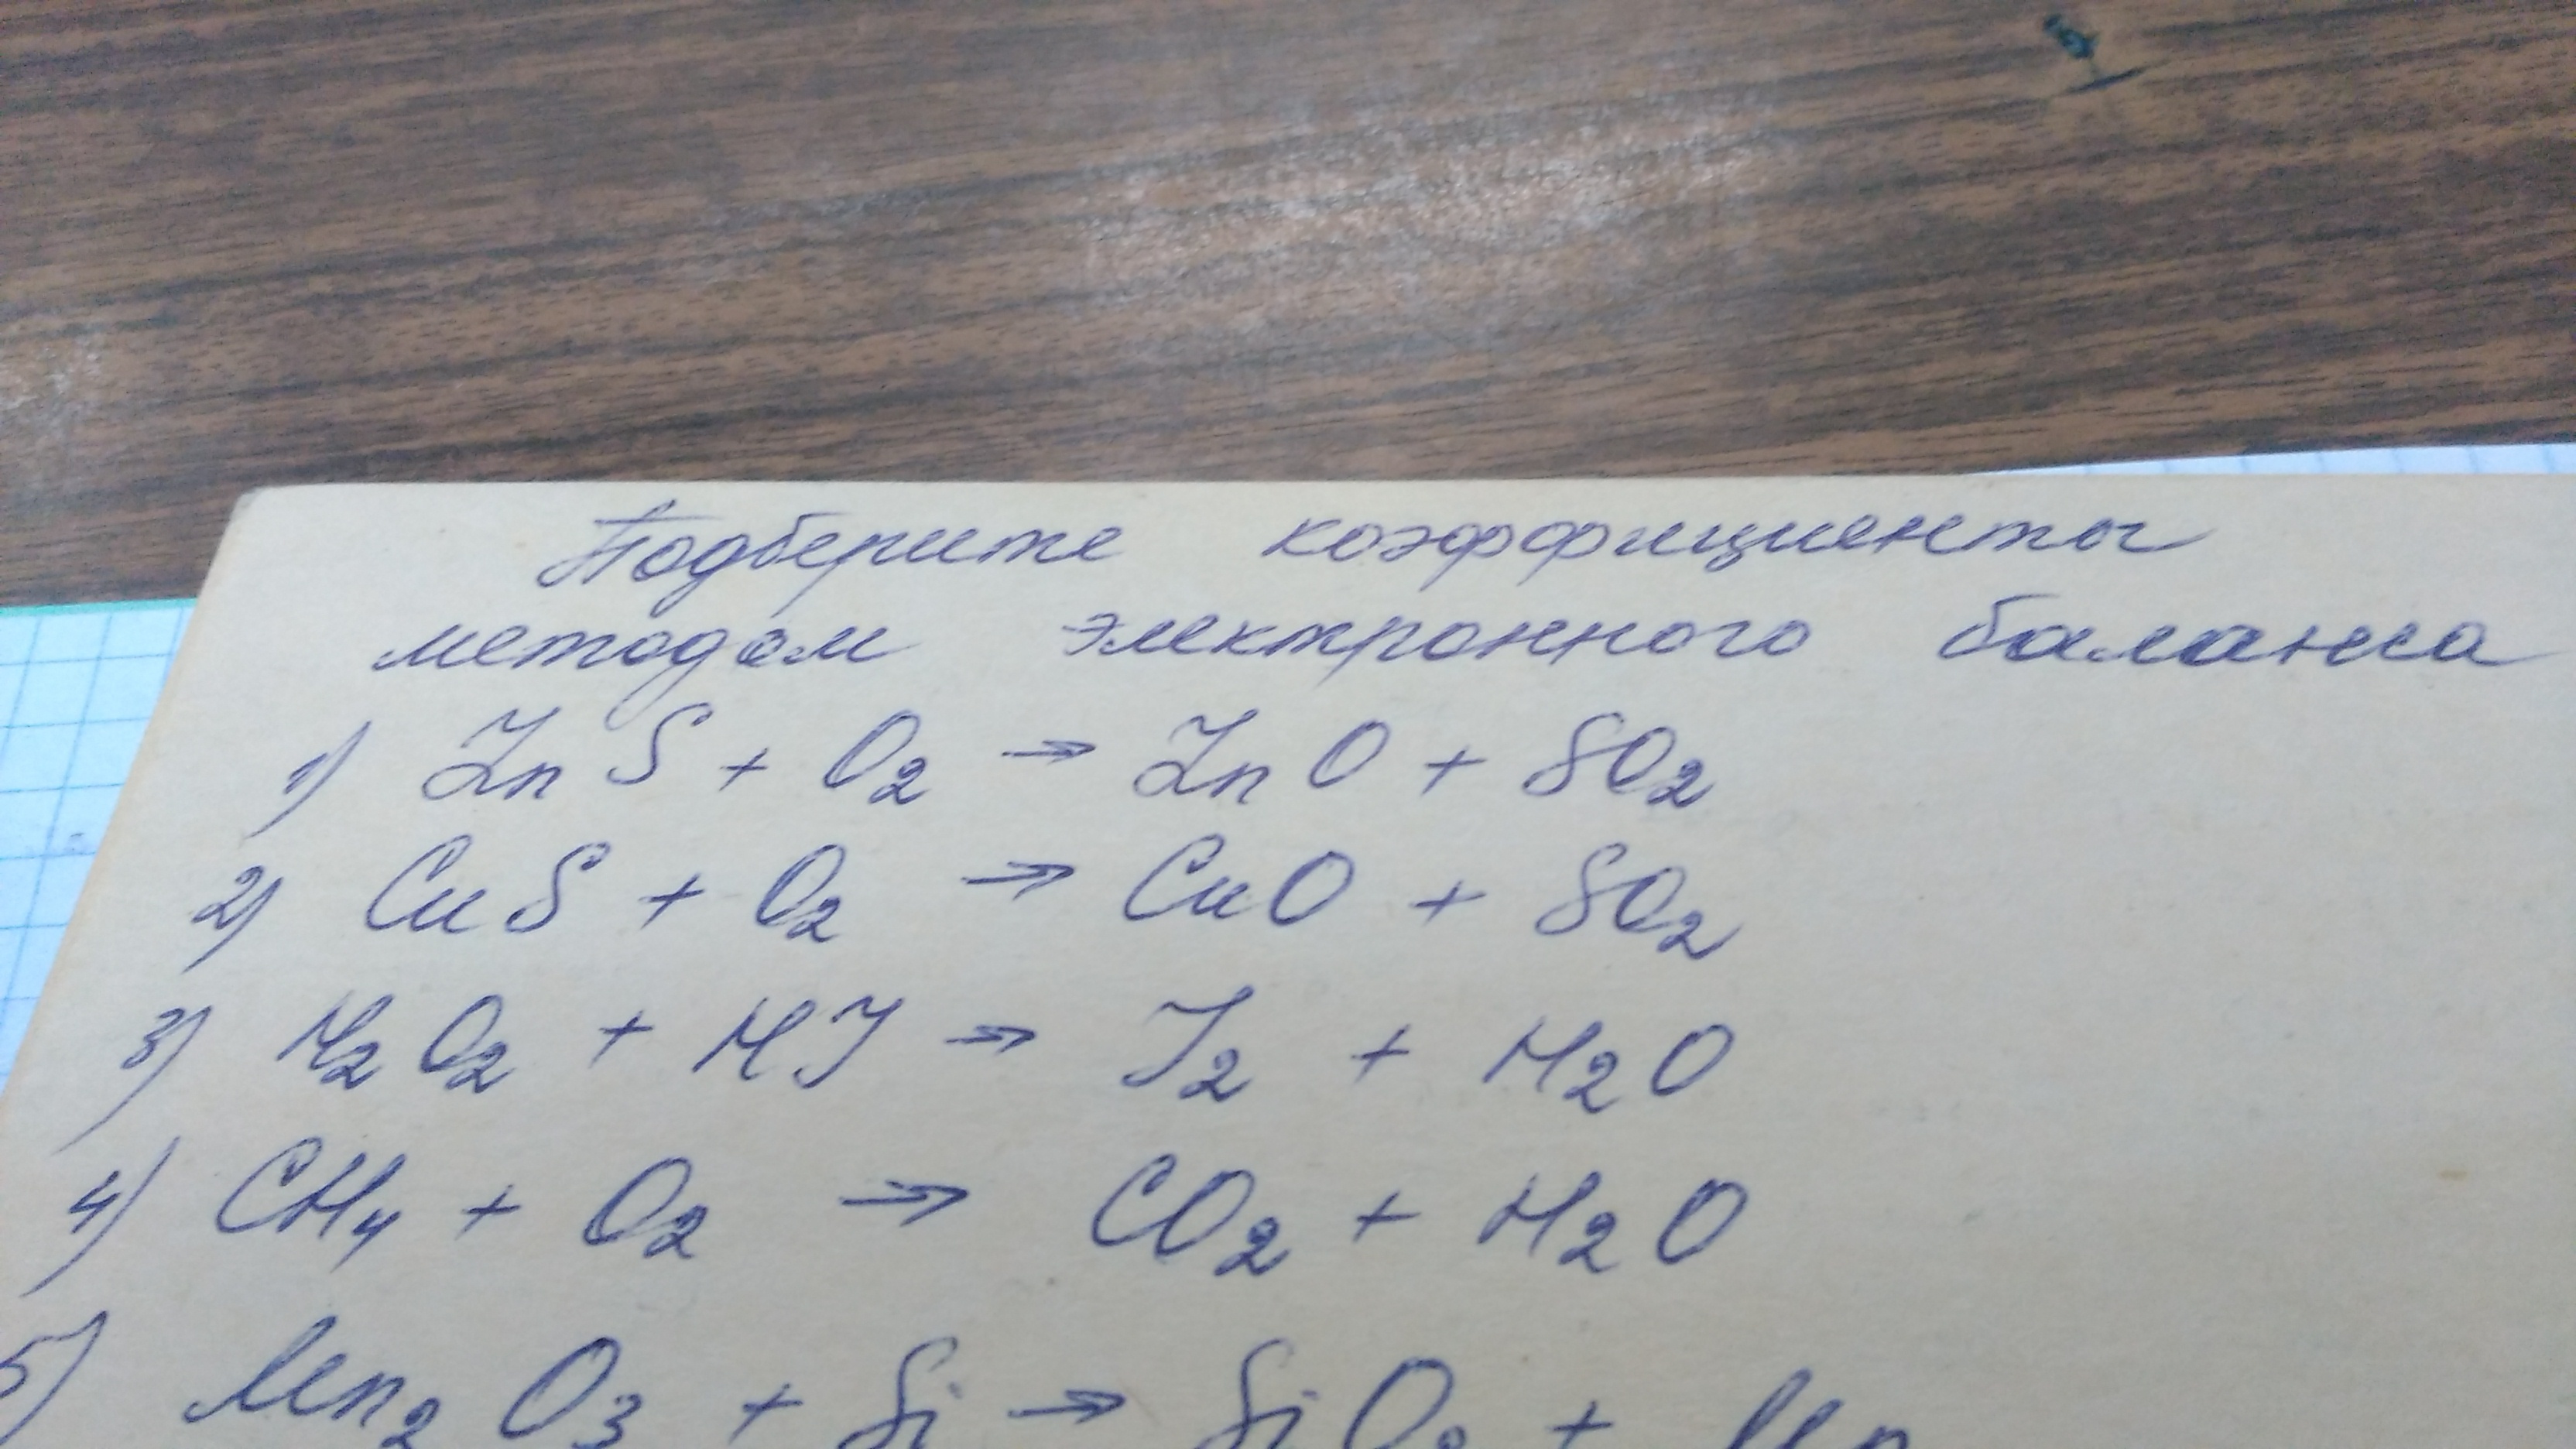 Подберите коэффициенты
методом электронного баланса
1) ZnS + O₂ → ZnO + SO₂
2) CuS + O₂ → CuO + SO₂
3) H₂O₂ + HJ → J₂ + H₂O
4) CH₄ + O₂ → CO₂ + H₂O
5) Mn₂O₃ + Si → SiO₂ + Mn